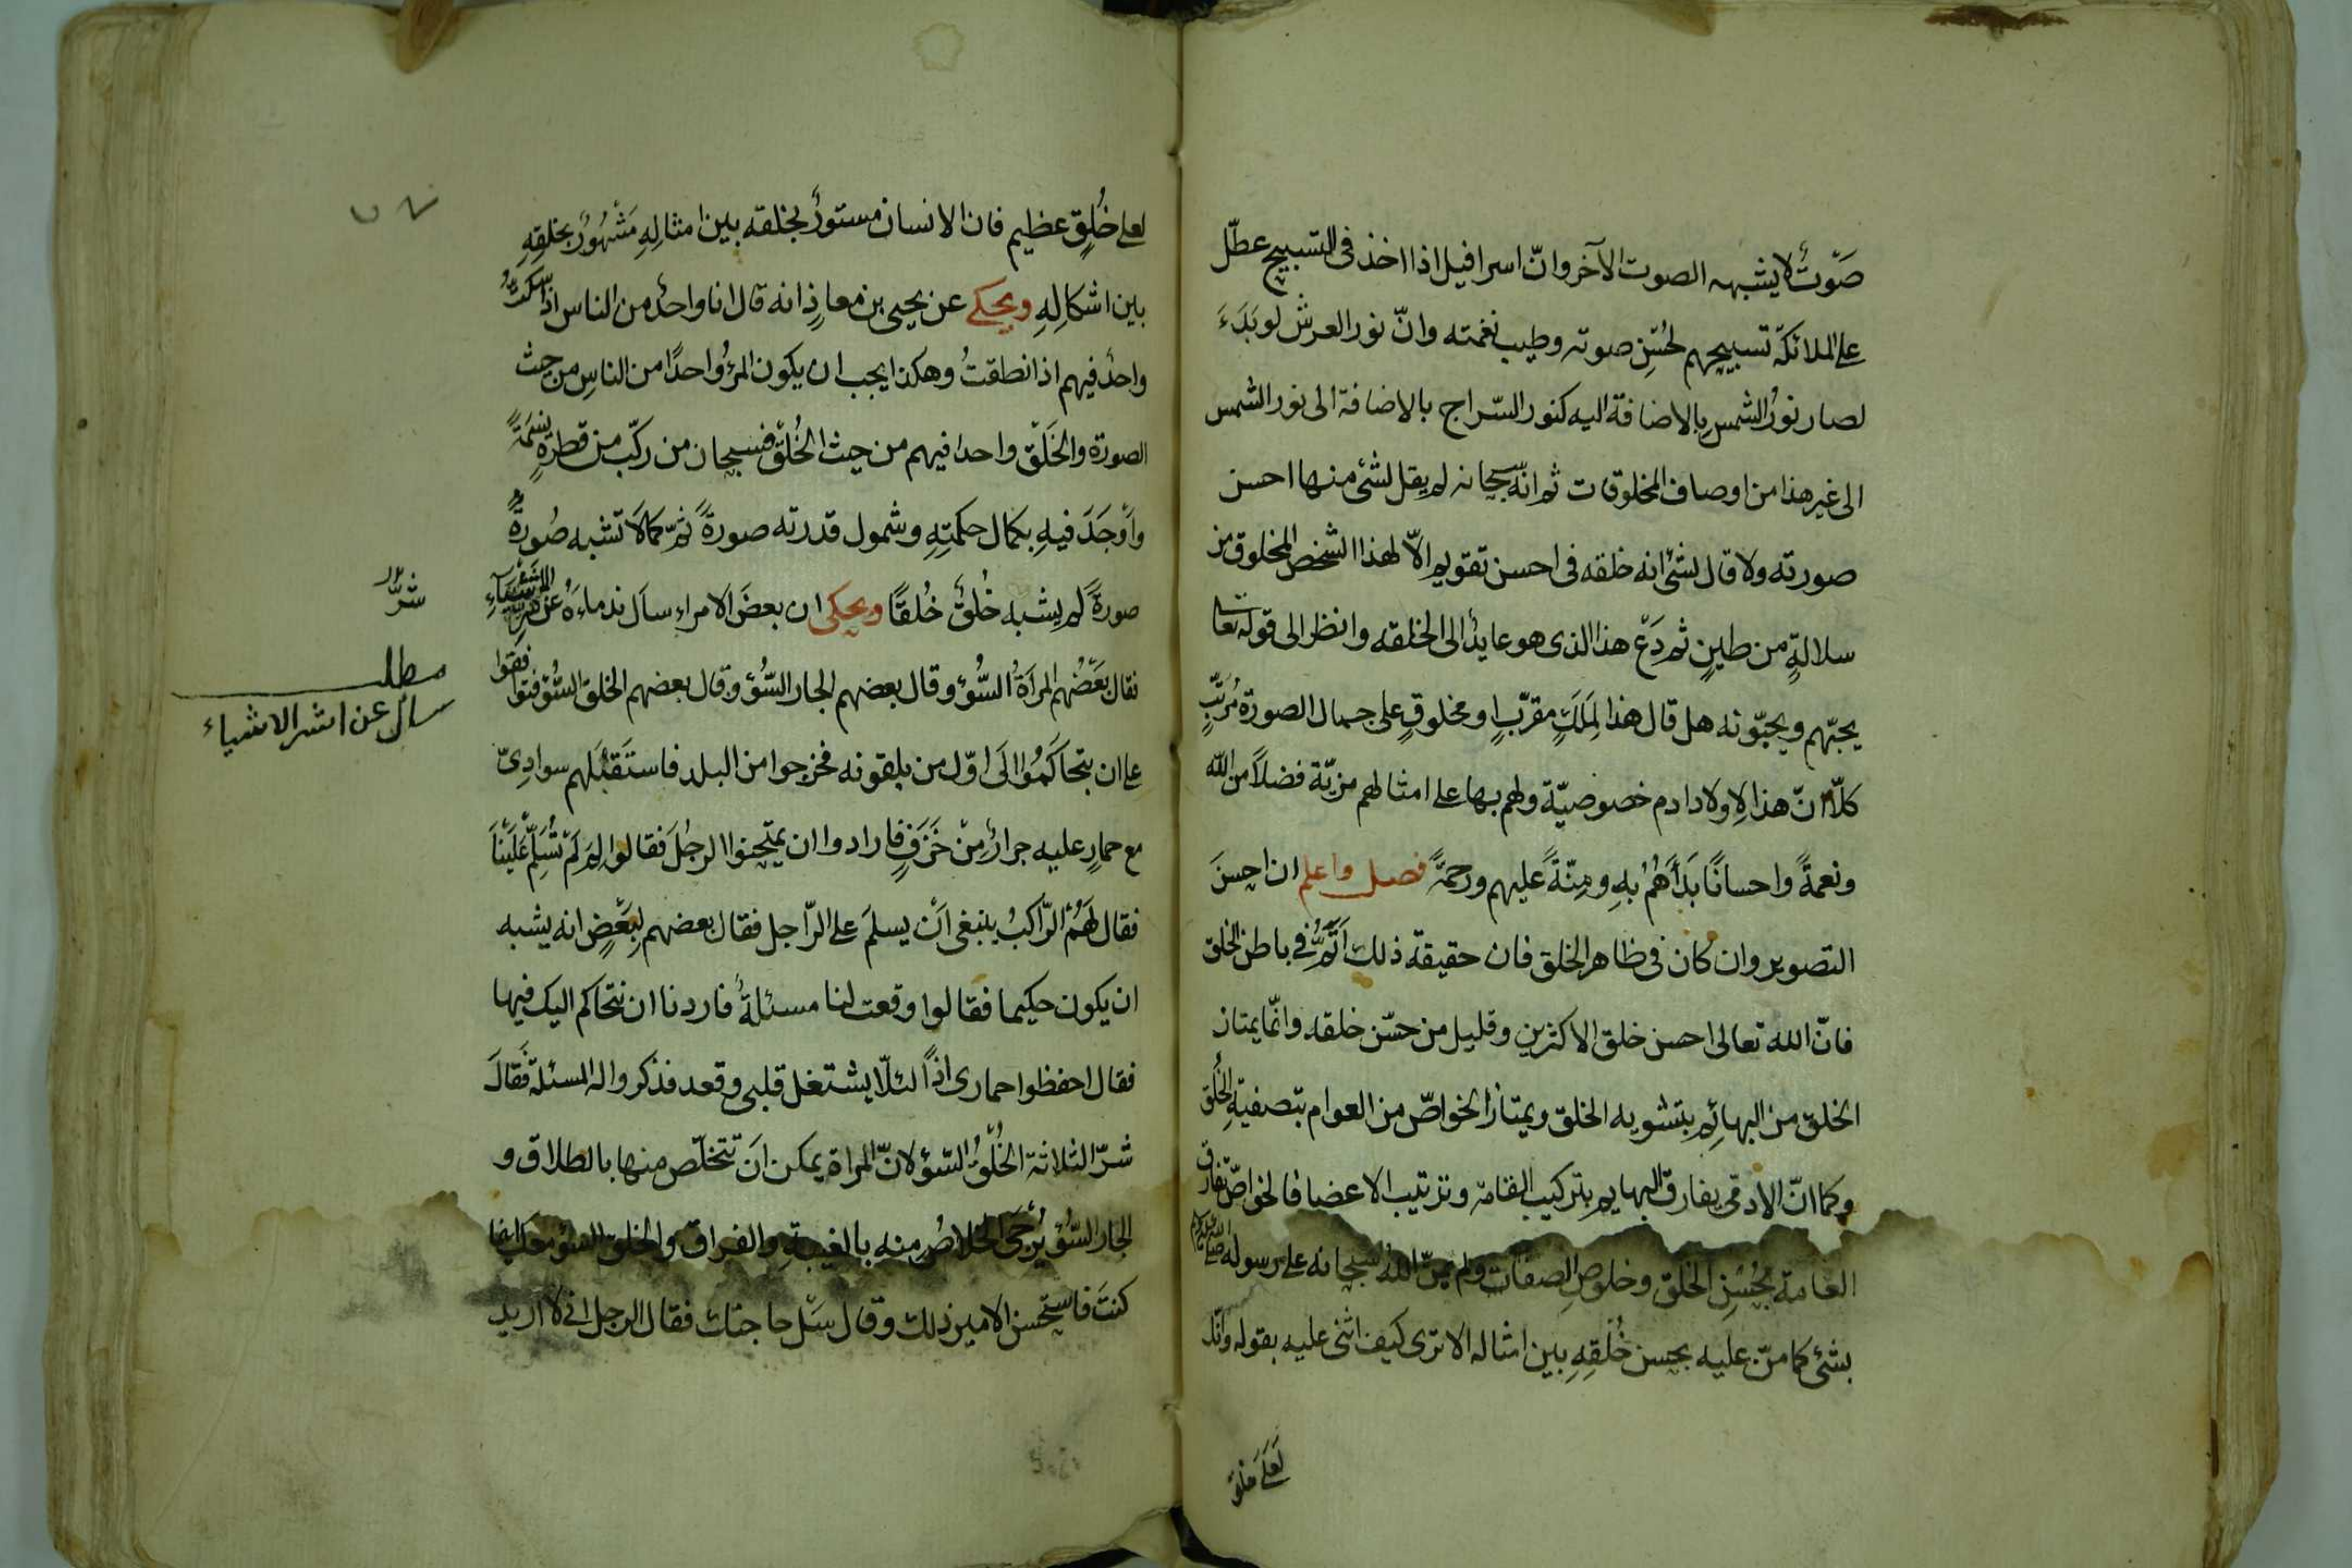 صَوْتٌ لا يشبهه الصوت الآخر وانّ اسرافيل اذا اخذ فى التسبيح عطّل
على الملائكة تسبيحهم لحُسْنِ صوته وطيب نغمته وانّ نور العرش لو بَدَءَ
لصار نورُ الشمسِ بالاضافة اليه كنور السّراج بالاضافة الى نور الشمس
الى غير هذا من اوصاف المخلوقات ثم انّه سبحانه لم يقل لشئ منها احسن
صورته ولا قال لشئ انه خلقه فى احسن تقويم الّا لهذا الشخص المخلوق من
سلالةٍ من طينٍ ثم دَعْ هذا الذى هو عايدٌ الى الخلقه وانظر الى قوله تعا
يحبّهم ويحبّونه هل قال هذا لِمَلَكٍ مقرّبٍ او مخلوقٍ على جمال الصورة مُرَتَّبٍ
كلّا انّ هذا لِاولاد ادم خصوصيّة ولهم بها على امثالهم مزيّة فضلاً من الله
ونعمةً واحسانًا بَدَأَهُمْ بهِ ومِنّةً عليهم ورحمةً فصل واعلم ان احسنَ
التصوير وان كان فى ظاهر الخلق فان حقيقة ذلك اَتَمُّ فى باطن الخلق
فانّ الله تعالى احسن خلق الاكثرين وقليل من حسّن خلقه وانّما يمتاز
الخلق من البهائم بتشويه الخلق ويمتاز الخواصّ من العوام بتصفيةِ الخُلق
وكما انّ الادمى يفارق البهايم بتركيب القامة وترتيب الاعضا فالخواصّ تفارق
العامة بحُسْنِ الخلق وخلوصِ الصفات ولم يمنّ اللهُ سبحانه على رسوله صلى الله عليه وسلم
بشئ كما منّ عليه بحسن خُلقِهِ بين امثاله الا ترى كيف اثنى عليه بقوله وانّك
لَعَلَى خلق
لعلى خُلقٍ عظيم فان الانسان مستورٌ بخلقه بين امثالِهِ مَشْهُورٌ بخلقِهِ
بين اشكالِهِ ويحكى عن يحيى بن معاذٍ انه قال انا واحدٌ من الناس اذا سكتُّ
واحدٌ فيهم اذا نطقتُ وهكذا يجب ان يكون المرؤُ واحدًا من الناسِ من حيث
الصورة والخَلْق واحدا فيهم من حيث الخُلْق فسبحان من ركّب من قطرةٍ نسَمَةً
وأوْجَدَ فيهِ بكمال حكمتِهِ وشمول قدرته صورةً ثمّ كما لَا تشبه صُورةٌ
صورةً لم يشبه خُلُقٌ خُلقًا ويحكى ان بعضَ الامراءِ سأل ندماءَهُ عن شرّ الاشياءِ
شرُّ
فقال بَعْضُهم المرأةُ السُّؤ وقال بعضهم الجار السُّؤ وقال بعضهم الخلق السُّؤ فاتفقوا
مطلب
سأل عن اشر الاشياء
على ان يتحاكَمُوا الَى اوّل من يلقونه فخرجوا من البلد فاستَقبَلَهم سوادِىّ
مع حمارٍ عليه جرارٌ مِنْ خَزَفٍ فارادوا ان يمتحنوا الرجلَ فقالوا لِمَ لَمْ تُسَلِّمْ عَلَيْنَا
فقال لَهُمْ الرّاكبُ ينبغى أنْ يسلمَ على الرّاجل فقال بعضهم لِبَعْضٍ انه يشبه
ان يكون حكيما فقالوا وقعت لنا مسئلةٌ فاردنا ان نتحاكم اليك فيها
فقال احفظوا حمارى اذًا لئلّا يشتغل قلبى وقعد فذكروا له المسئلة فقالَ
شرّ الثلاثة الخُلْقُ السّؤ لانّ المراة يمكن انَ تتخلّص منها بالطلاق و
الجار السُّؤ يُرْجَى الخلاصُ منه بالغيبةِ والفراق والخلق السؤ معك اينما
كنتَ فاستحسن الامير ذلك وقال سَلْ حاجتك فقال الرجل انى لا اريد